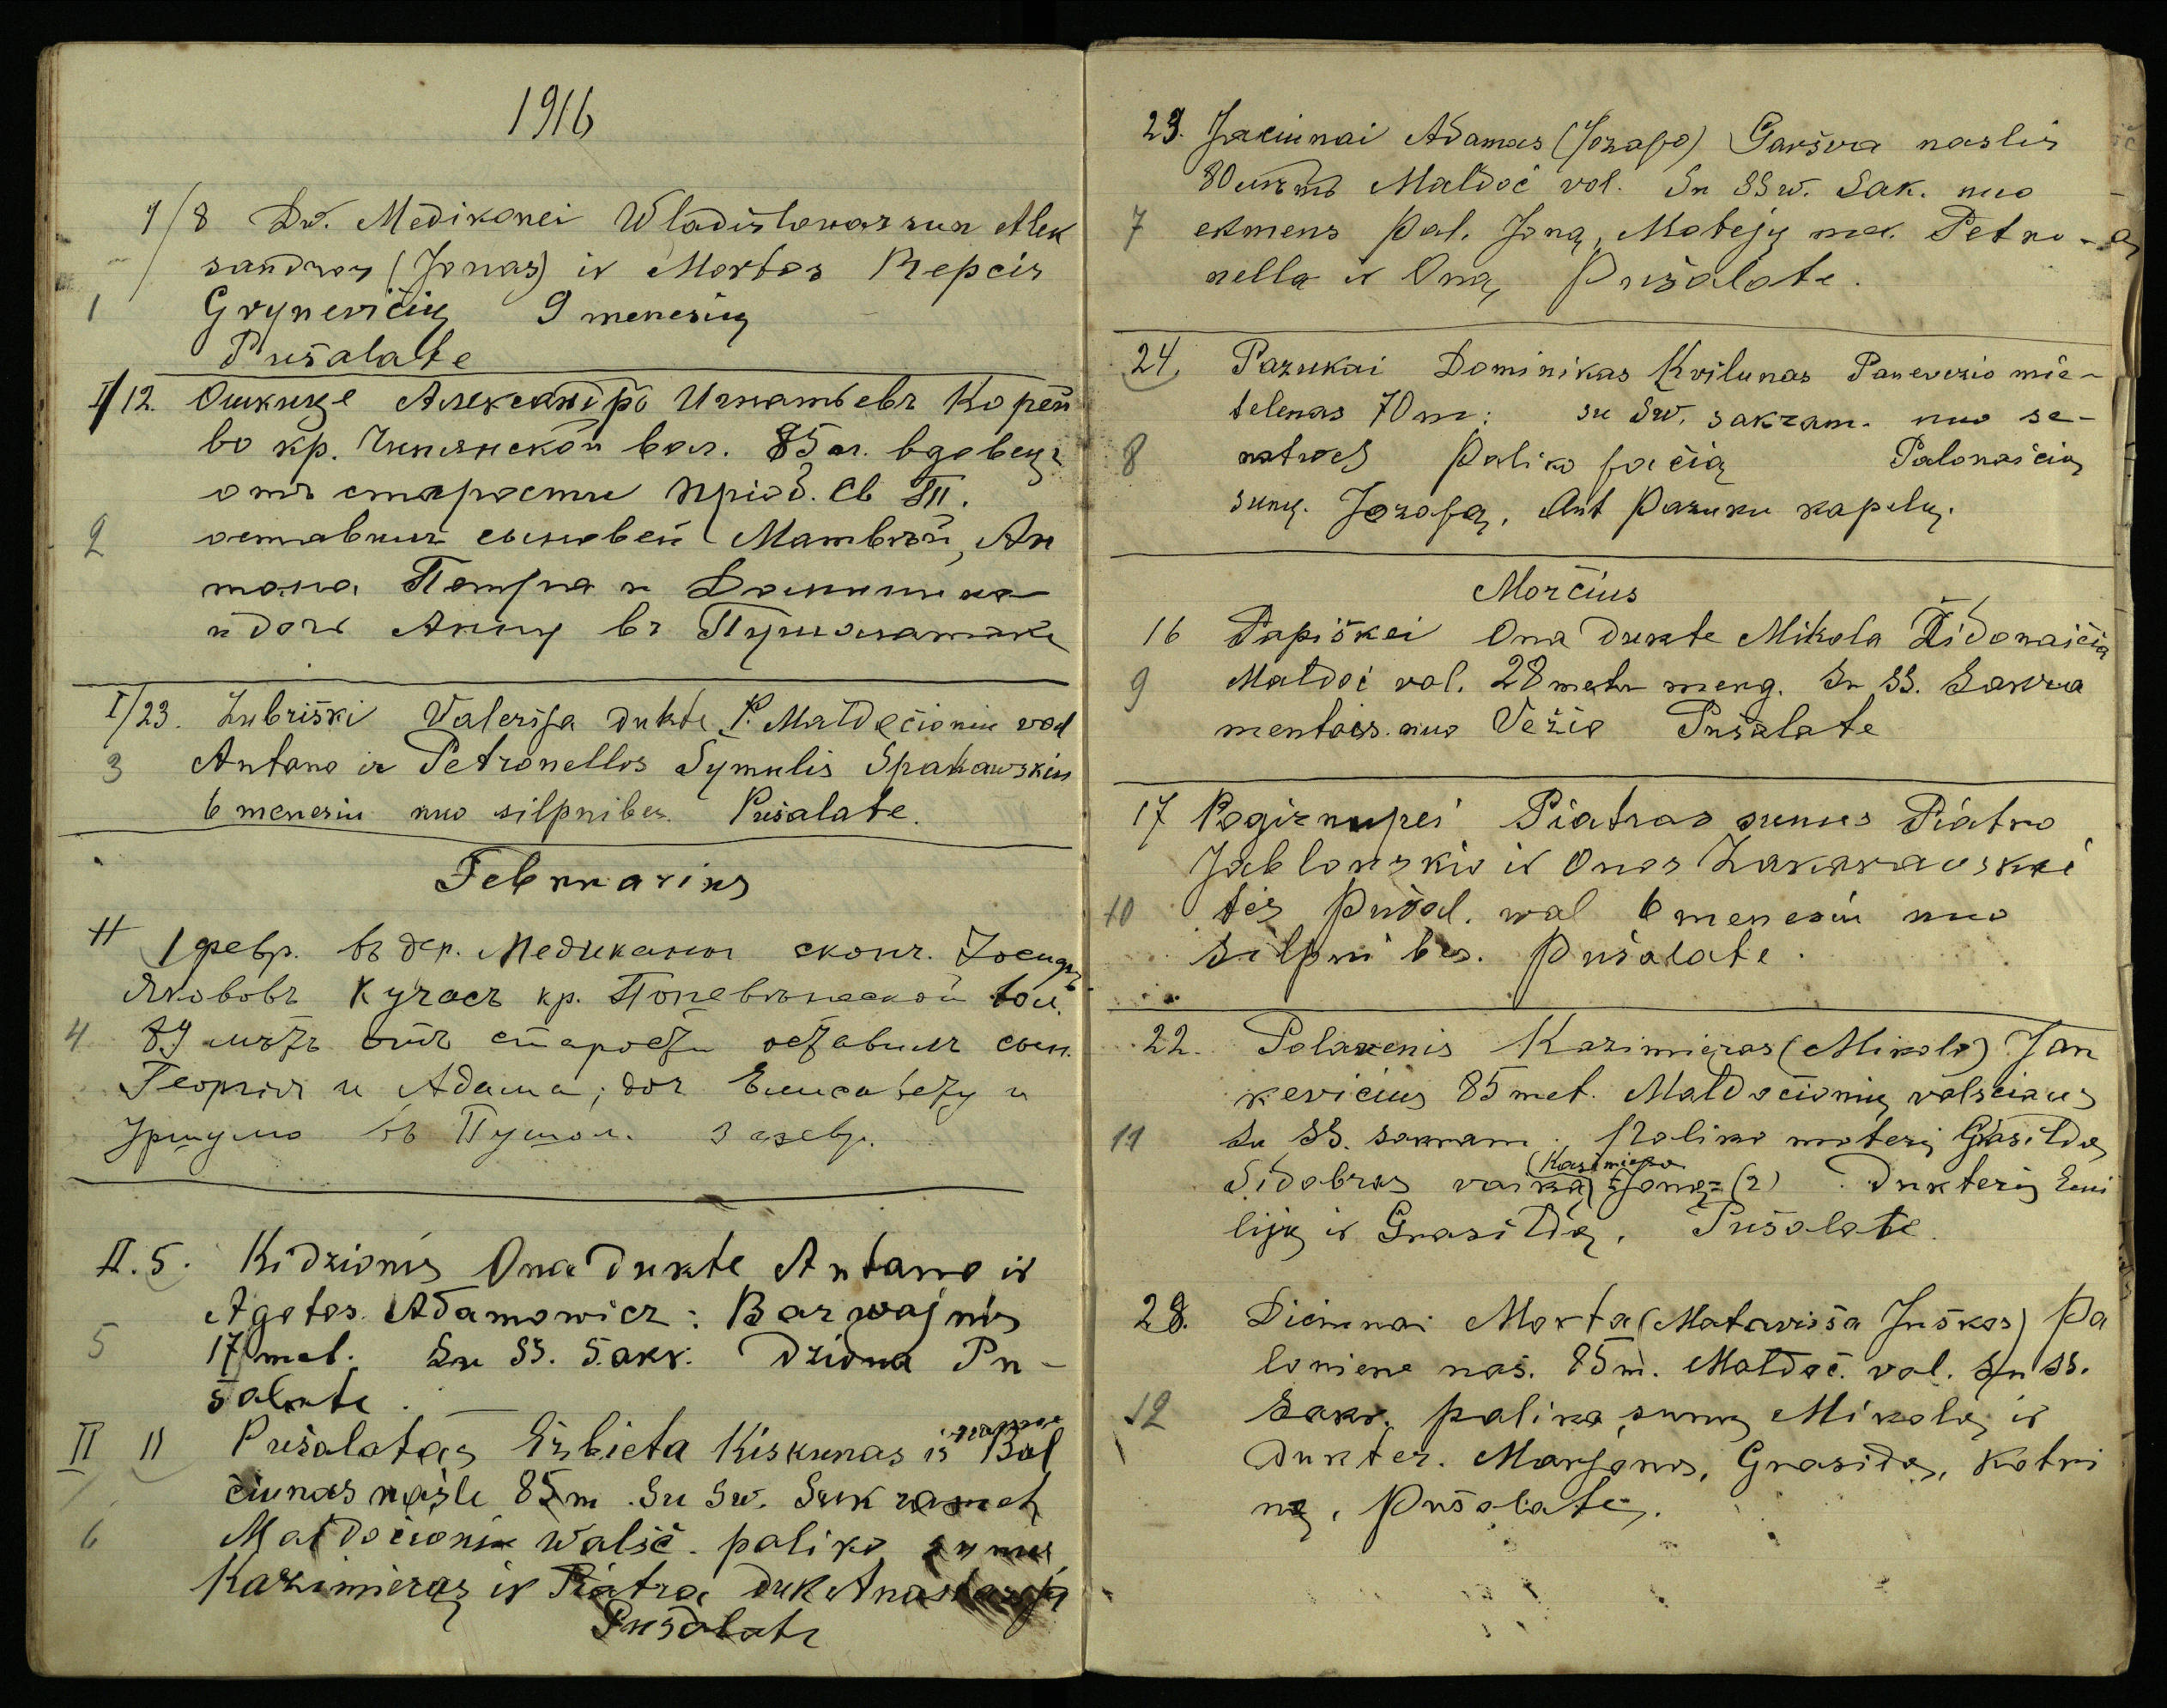 1916
1/8 Dv. Medikonei Wladislovas sun Alek
sandros (Jonas) ir Mortos Repcis
1 Grynevičių 9 menesių
Pušalate
I/12. Ошкице Александръ Игнатьевъ Корей
во кр. вол. 85 л. вдовецъ
отъ старости пріоб. Св Т.
2 оставилъ сыновей Матвѣй, Ан
тона Петра и Доминика
и дочь Анну въ
I/23. Zubriški Valerija dukte P. Maldočioniu vol
3 Antano ir Petronellos Symulis Spakawskiu
6 menesiu nuo silpnibes. Pušalate.
Februarius
II 1 февр. въ дер. Медикани сконч. Іосифъ
Якововъ Кучасъ кр. вол.
4 89 лѣтъ отъ старости оставилъ сын.
Георгія и Адама, доч Елисавету и
въ Пушол. 3 февр.
II. 5. Kidzionis Ona dukte Antano ir
Agotos Adamowicz: Barwajnis
5 17 met. Su SS. Sakr. Dziowa Pu-
šalate.
II 11 Pušalatas Elzbieta Kiskunas is Bal
čiunas našle 85 m. Su Sw. Sakramet
6 Maldočioniu Walsč. paliko sunus
Kazimieras ir Piatra duk Anastazija
Pušalate
23. Jaciunai Adamas (Jozapo) Garšva naslis
80 Maldoč vol. Su SSw. Sak. nuo
7 ekmens Pal. Joną, Motejų Petro-
nella ir Oną, Pušalate.
24. Pazukai Dominikas Kvilunas Panevezio mie-
telenas 70 m: su Sw. sakram. nuo se-
8 natves Paliko pačią Palonaičią
sunų. Jozapą. Ant Pazuku kapelų.
Morčius
16 Papiškei Ona dukte Mikola Židonaičia
9 Maldoč vol. 28 metu merg. Su SS. Sakra
mentois. nuo Vežio Pušalate
17 Pogirnupei Piatras sunus Piatro
Jablonskio ir Onos Zakarauskai
10 tės Pušal. wal 6 menesiu nuo
silpnibes. Pušalate.
22. Polavenis Kazimieras (Mikolo) Jan
kevicius 85 met. Maldočionių valsciaus
11 su SS. sakram. Paliko moterį Grasildą
(Kazimiera
Sidobras vaiką Joną (2) Dukterių Emi
liją ir Grasildą. Pušolate.
28. Diciunai Morta (Matavišia Juškos) Pa
loniene naš. 85 m. Maldoč. vol. Su SS.
12 Sakr. paliko sunų Mikolą ir
Dukter. Marjoną, Grasidą, Kotri
ną. Pušolatę.